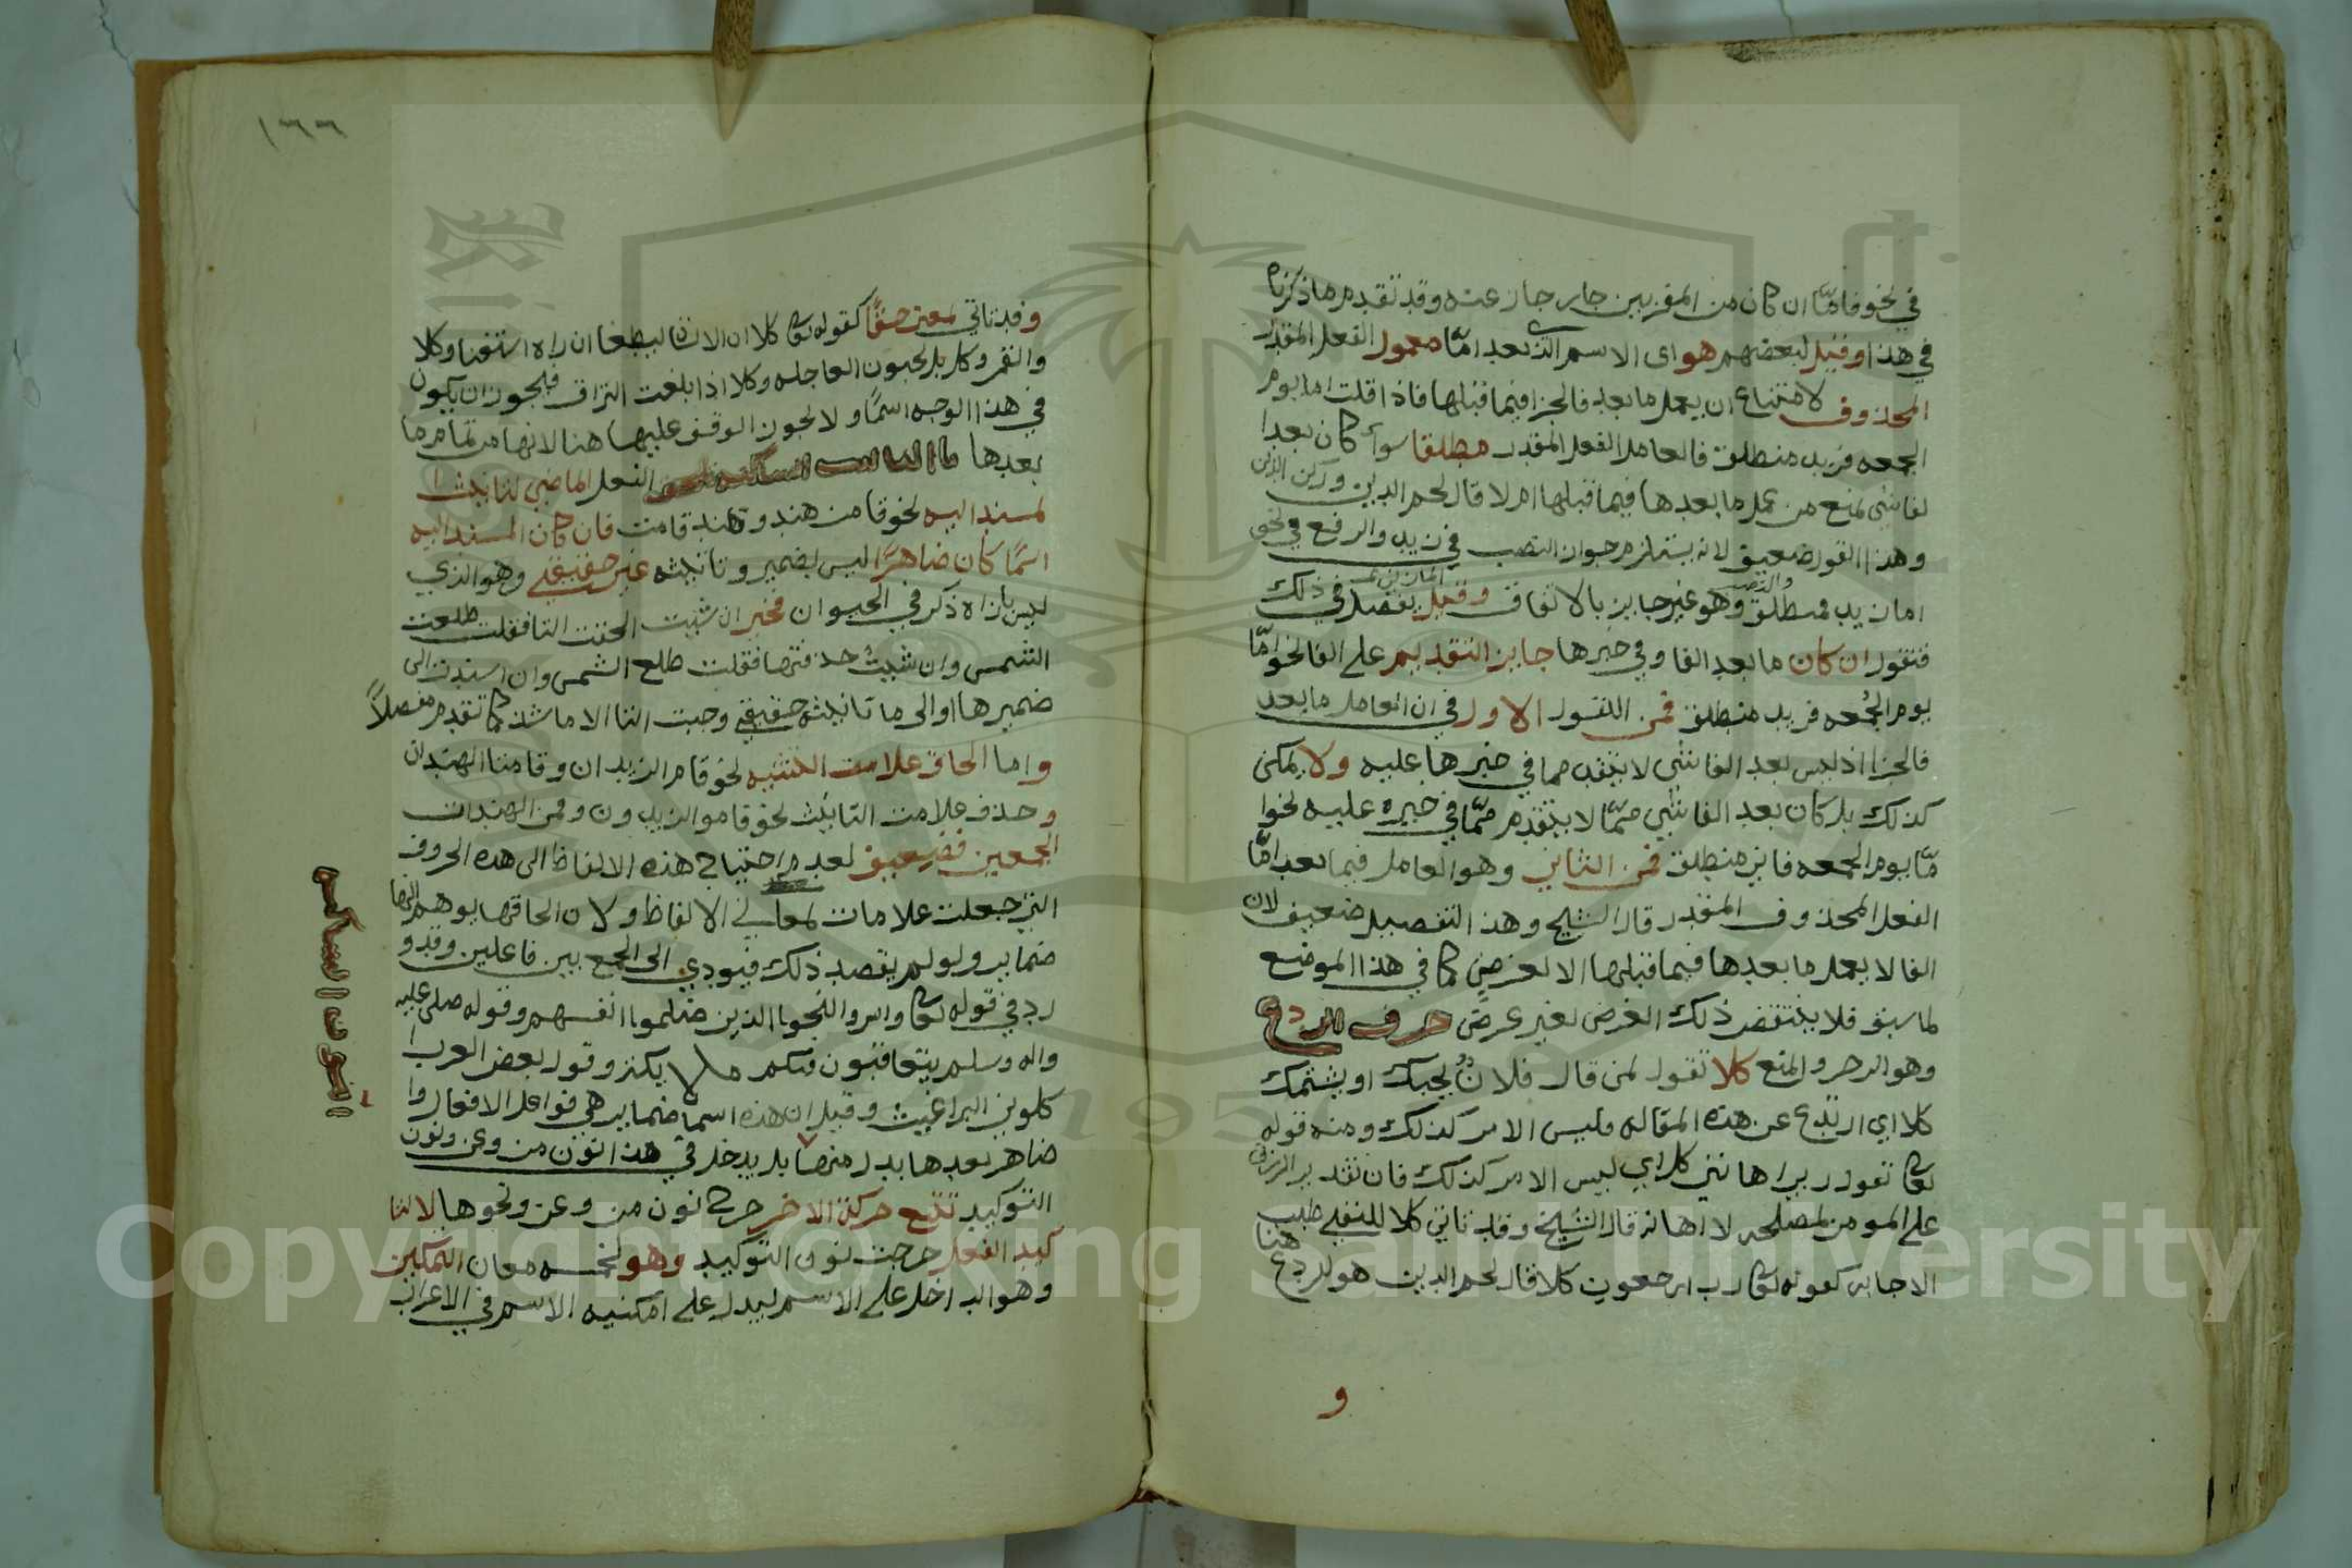 في نحو فامّا ان كان من المقربين جاز جاز عنه وقد تقدم ما ذكرناه
في هذا وقيل لبعضهم هو اى الاسم الذي بعد امّا معمول الفعل المقدر
المحذوف لامتناع ان يعمل ما بعد فا الجزا فيما قبلها فاذا قلت اما يوم
الجمعه فزيد منطلق فالعامل الفعل المقدر مطلقا سوآء كان بعد ا
لفا شى يمنع من عمل ما بعدها فيما قبلها ام لا قال نجم الدين وركن الدين
وهذا القول ضعيف لانه يستلزم جواز النصب في زيد والرفع في نحو
اما زيد فمنطلق والنصب وهو غير جايز بالاتفاق وقيل يفصل في ذلك
فنقول ان كان ما بعد الفا وفي خبرها جايز التقديم على الفا نحو امّا
يوم الجمعه فزيد منطلق فمن القول الاول في ان العامل ما بعد
فا الجزا اذ ليس بعد الفا شى لا يتقدم ما في خبرها عليه ولا يمكن
كذلك بل كان بعد الفا شي ممّا لا يتقدم ممّا في خبره عليه نحو ا
مّا يوم الجمعه فان منطلق فمن الثاني وهو العامل فيما بعد امّا
الفعل المحذوف المقدر قال الشيخ وهذا التفصيل ضعيف لان
الفا لا يعمل ما بعدها فيما قبلها الا لغرض كما في هذا الموضع
لما سبق فلا ينتقض ذلك الغرض لغير غرض حرف الردع
وهو الزجر والمنع كلا تقول لمن قال فلانٌ يحبك او يشتمك
كلا اي ارتدع عن هذه المقاله فليس الامر كذلك ومنه قوله
تعا تقول ربي اهانني كلا اي ليس الامر كذلك فان تقدير الرزق
على المومن لمصلحه لا اهانه قال الشيخ وقد تاتي كلا للنفي طيب
الاجابه كقوله تعا رب ارجعون كلا قال نجم الدين هو للردع هنا
و
١٦٦
وقد تاتي بمعنى حقًّا كقوله تعا كلا ان الانسان ليطغا ان راه استغنا وكلا
والقمر وكلا بل تحبون العاجله وكلا اذا بلغت التراق فيجوز ان يكون
في هذا الوجه اسمًا ولا يجوز الوقف عليها هنا لانها من تمام ما
بعدها تا التانيث الساكنه تلحق الفعل الماضي لتانيث ا
لمسند اليه نحو قامت هند وهند قامت فان كان المسند اليه
اسمًا كان ضاهرًا ليس بضمير وتانيثه غير حقيقي وهو الذي
ليس بازاه ذكر في الحيوان فمخير ان شيت الحقت التا فقلت طلعت
الشمس وان شيت حذفتها فقلت طلع الشمس وان اسندت الى
ضميرها او الى ما تانيثه حقيقي وجبت التا الا ما شذ كما تقدم مفصلاً
واما الحاق علامت التثنيه نحو قاما الزيدان وقامتا الهندان
وحذف علامت التانيث نحو قاموا الزيدون وقمن الهندات
الجمعين فضعيف لعدم احتياج هذه الالفاظ الى هذه الحروف
التي جعلت علامات لمعاني الالفاظ ولان الحاقها يوهم انها
ضماير ولو لم يقصد ذلك فيودي الى الجمع بين فاعلين وقد و
رد في قوله تعا واسروا النجوا الذين ضلموا انفسهم وقوله صلى عليه
واله وسلم يتعاقبون فيكم ملايكة وقول بعض العرب ا
كلوني البراغيث وقيل ان هذه اسما ضماير هي فواعل الافعال وا
ضاهر بعدها بدل منها بل يدخل في هذا النون من وعن ونون
التوكيد تتبع حركة الاخر خرج نون من وعن ونحوها لا لتا
كيد الفعل خرجت نون التوكيد وهو لخمسه معان التمكين
وهو الداخل على الاسم ليدل على امكنيه الاسم في الاعراب
التنوين نون الساكنه
Copyright © King Saud University
1957